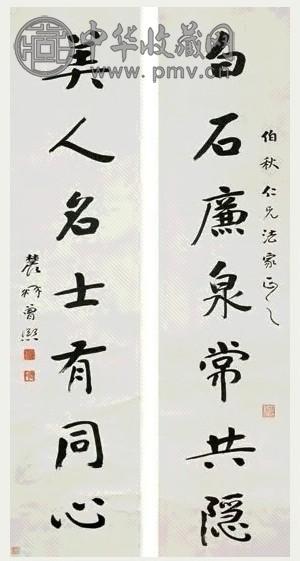 中华收藏网
www.pmv.cn
伯秋仁兄法家正之
白石廉泉常共隱
美人名士有同心
農髯曾熙